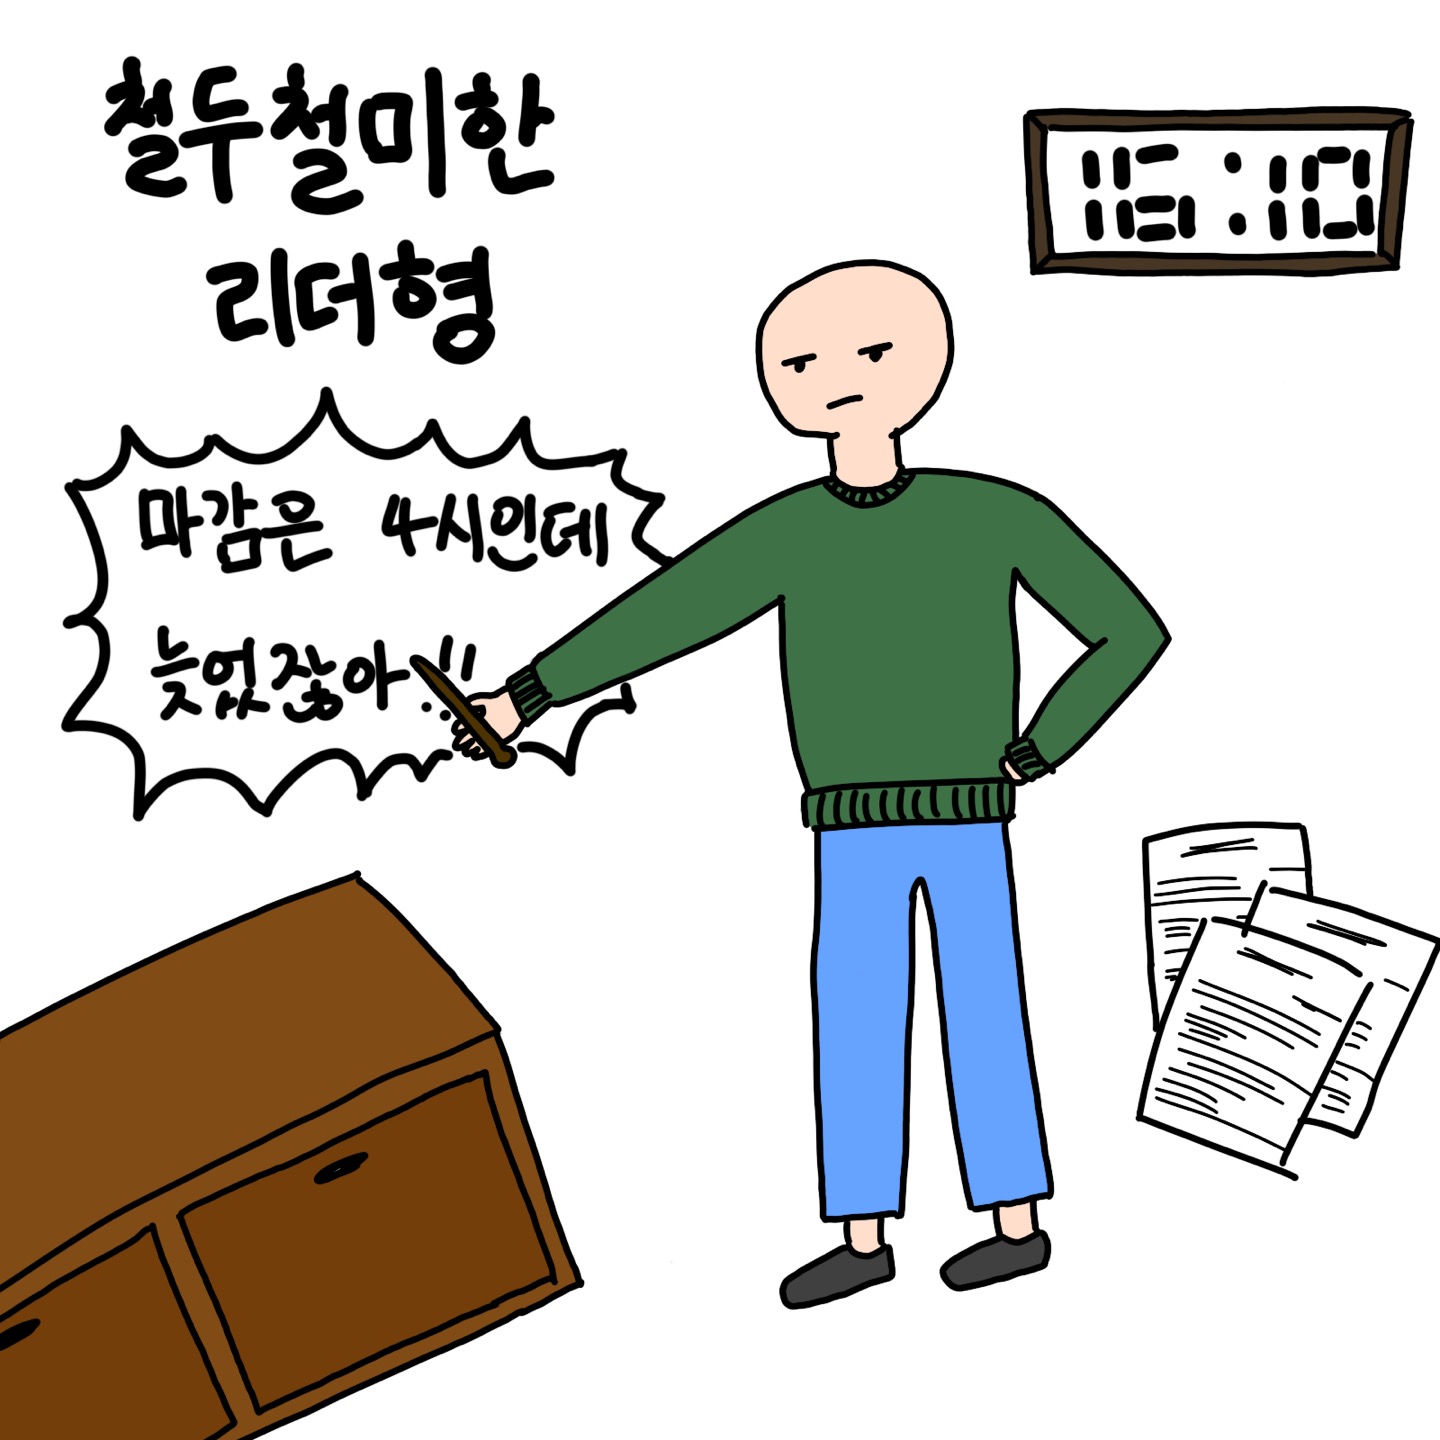 철두철미한
리더형
16:10
마감은 4시인데
늦었잖아..!!